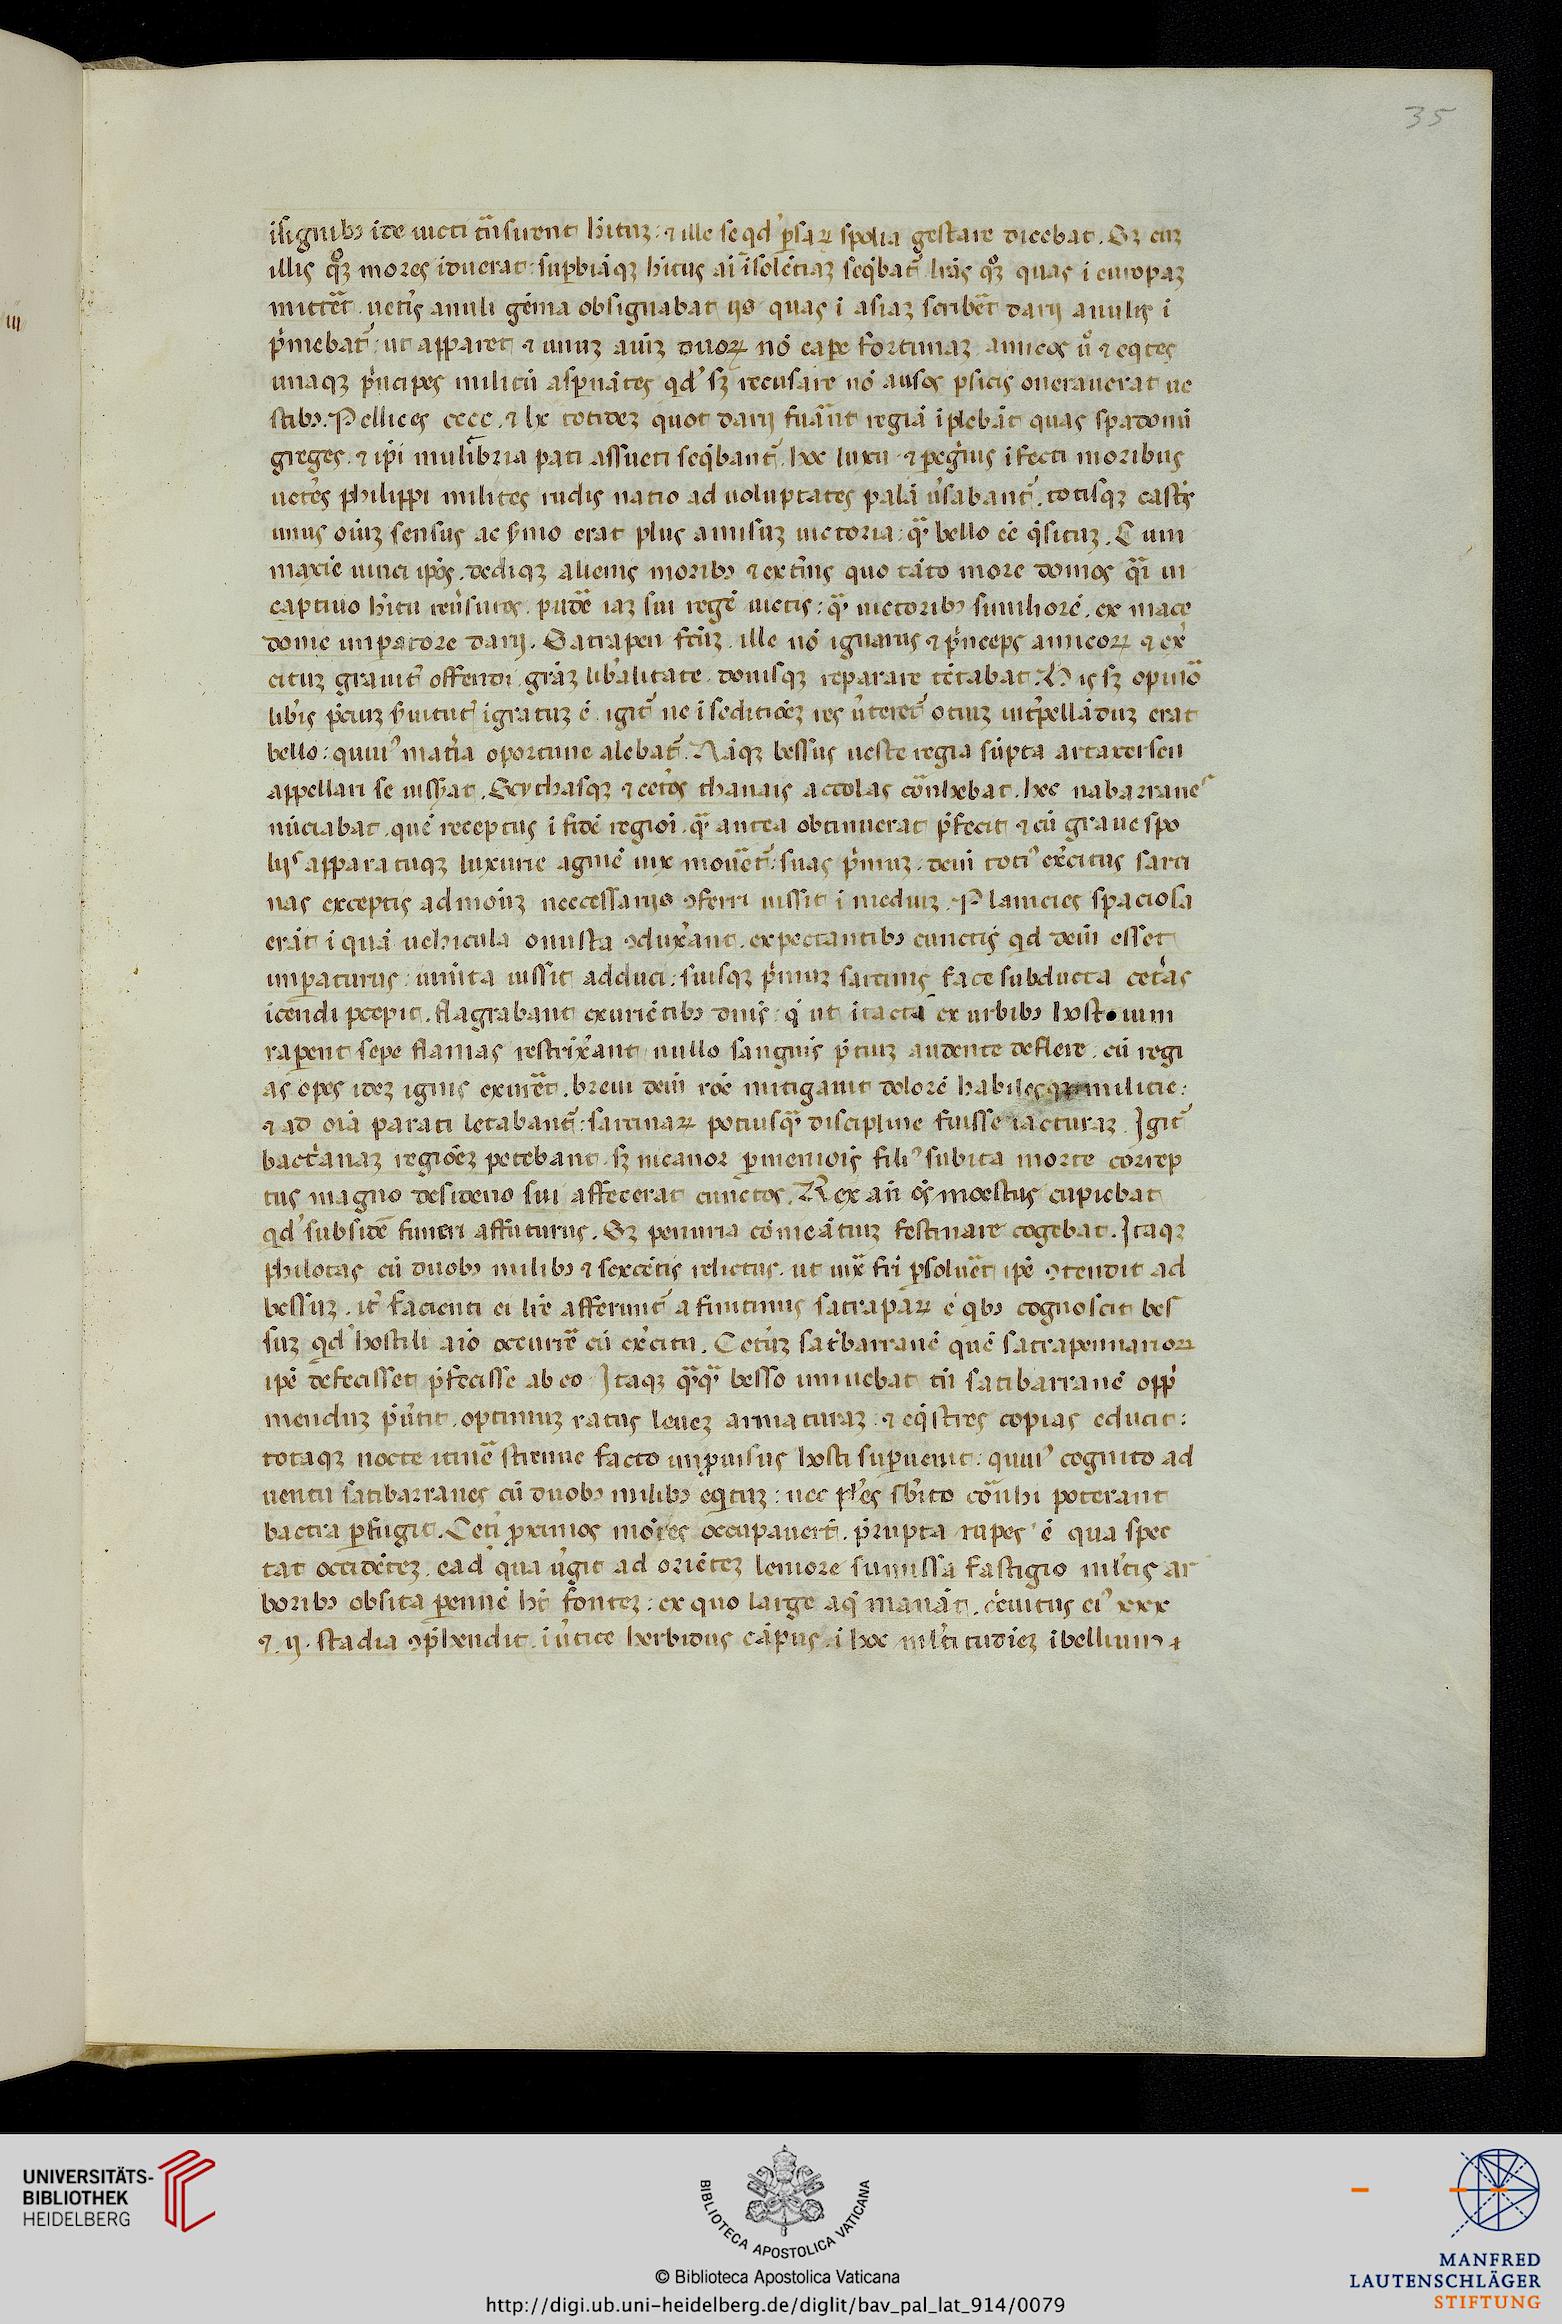 35
isignibꝫ ide uicti t̄nsirent h̄ituꝫ: ⁊ ille se qd' ꝑsaꝝ spolia gestare dicebat. Sꝫ cuꝫ
illis qͦꝫ mores iduerat: suꝑbiāqꝫ h̄itus ai īsolētiaꝫ seq̄bat᷑ lr̄as qͦꝫ quas i europaꝫ
mittēt ueťis anuli gēma obsignabat ijs quas i asiaꝫ scribēt darij anulis i
p̓mebat᷑: ut apparet ⁊ unuꝫ aīuꝫ duoꝝ nō cape fortunaꝫ amicos ů ⁊ eq̇tes
unaqꝫ p̓ncipes militū asꝑnātes qd' sꝫ recusare nō ausos ꝑsicis onerauerat ue
stibꝫ. Pellices cccc. ⁊ lx totideꝫ quot darij fuāt regiā īplebāt quas spadonū
greges. ⁊ ip̄i mulibria pati assueti seq̄bant᷑. hoc luxu ⁊ ꝑeg̓nis īfecti moribus
ueťes philippi milites rudis natio ad uoluptates palā ůsabant᷑. totisqꝫ casťs
unus oīuꝫ sensus ac ẜmo erat plus amisuꝫ uictoria: qᷓ bello eē q̄situꝫ. Cum
maxīe uinci ip̄os. dediqꝫ alienis moribꝫ ⁊ exťnis quo tāto more domos qᷓi in
captiuo h̄itu reůsuros. pudē iaꝫ sui regē uictis: qᷓ uictoribꝫ similiorē. ex mace
donie imꝑatore darij. Satrapen fc̄uꝫ. ille nō ignarus ⁊ p̓nceps amicoꝝ ⁊ ex̓
cituꝫ grauiť offendi. grāꝫ lib̓alitate. donisqꝫ reparare tētabat. His sꝫ opinō
lib̓is p̄ciuꝫ ẜuitut᷑ igratuꝫ ē. igit᷑ ne i seditiōeꝫ res ůteret᷑ otiuꝫ inťpellāduꝫ erat
bello: quiu᷒ maťia oportune alebat᷑. Nāqꝫ bessus ueste regia sūpta artaxersen
appellari se iusẜat. Scythasqꝫ ⁊ ceťos thanais accolas cōt̄hebat. hec nabarranes
nūciabat. quē receptus i fidē regiōi. qᷓ antea obtinuerat p̄fecit ⁊ cū graue spo
lijs apparatuqꝫ luxurie agmē uix mouēt᷑: suas p̓muꝫ. dein̄ toti᷒ ex̓citus sarci
nas exceptis admōuꝫ necessarijs ꝯferri iussit i mediuꝫ. Planicies spaciosa
erāt i quā uehicula onusta ꝯdux̓ant. expectantibꝫ cunctis qd dein̄ esset
imꝑaturus: iumta iussit adduci: suisqꝫ p̓muꝫ sarcinis face subducta ceťas
icendi p̄cepit. flagrabant exuriētibꝫ dn̄is: q̇ ut itacta ex urbibꝫ hostium
raꝑent sepe flamas restrix̓ant nullo sanguis p̄tiuꝫ audente deflere. cū regi
as opes ideꝫ ignis exurēt. breui dein̄ rōe mitigauit dolorē habilesqꝫ milicie:
⁊ ad oīa parati letabant᷑: sarcinaꝝ potiusqᷓ discipline fuisse iacturaꝫ. Igit᷑
bacťanaꝫ regiōeꝫ petebant. sꝫ nicanor ꝑmeniois fili᷒ subita morte correp
tus magno desiderio sui affecerat cunctos. Rex an̄ oēs moestus cupiebat
qd' subsidē funeri affuturus. Sꝫ penuria cōmeātiuꝫ festinare cogebat. Itaqꝫ
philotas cū duobꝫ milibꝫ ⁊ sexcētis relictus. ut iux̄ fri ꝑsoluēt ip̄e ꝯtendit ad
bessuꝫ. iť facienti ei lr̄e afferunt᷑ a finitimis satrapaꝝ e qͥbꝫ cognoscit bes
suꝫ qd' hostili aīo occurrē cū ex̓citu. Ceťuꝫ satibarranē quē satrapenarioꝝ
ip̄e defecisset p̄fecisse ab eo. Itaqꝫ qᷓqᷓ besso iminebat tn̄ satibarranē opp̓
menduꝫ p̓ůtit. optimuꝫ ratus leueꝫ armaturaꝫ: ⁊ eq̇stres copias educit:
totaqꝫ nocte itinē strenue facto imꝓuisus hosti suꝑuenit: quiu᷒ cognito ad
uentu satibarranes cū duobꝫ milibꝫ eqtuꝫ: nec pl̓es sb̓ito cōt̄hi poterant
bactra ꝑfugit. Ceťi ꝓximos mōtes occupauerūt. p̄rupta rupes ē qua spec
tat occidēteꝫ. ead qua ůgit ad oriēteꝫ leniore sumissa fastigio ml̓tis ar
boribꝫ obsita ꝑennē ht fonteꝫ: ex quo large aq̄ manāt. c̓cuitus ei᷒ xxx
⁊. ij. stadia ꝯp̄hendit. i ůtice herbidus cāpus. i hoc ml̓titudieꝫ ibellium ⁊
UNIVERSITÄTS-
BIBLIOTHEK
HEIDELBERG
BIBLIOTECA APOSTOLICA VATICANA
© Biblioteca Apostolica Vaticana
http://digi.ub.uni-heidelberg.de/diglit/bav_pal_lat_914/0079
MANFRED
LAUTENSCHLÄGER
STIFTUNG